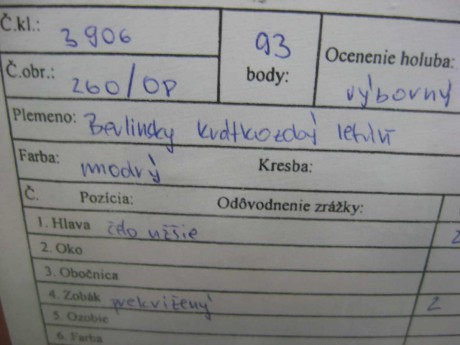 Č.kl.: 3906
93
body:
Ocenenie holuba:
výborný
Č.obr.: 260/OP
Plemeno: Berlínsky krátkozobý letún
Farba: modrý Kresba:
Č. Pozícia: Odôvodnenie zrážky:
1. Hlava čelo užšie 2
2. Oko
3. Obočnica
4. Zobák prekrížený 2
5. Ozobie
6. Farba